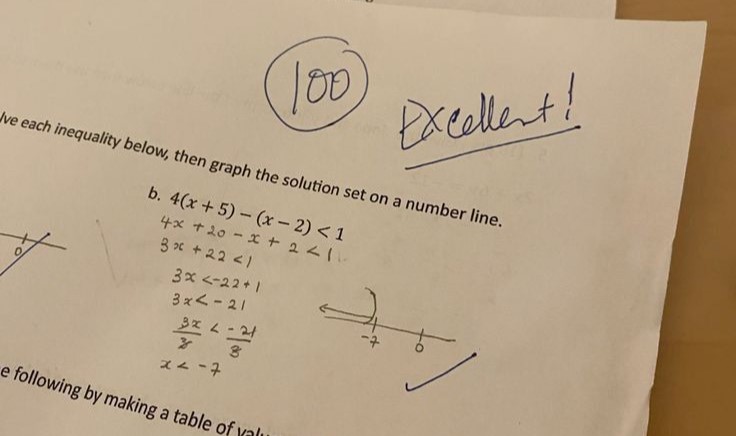 100
Excellent!
lve each inequality below, then graph the solution set on a number line.
b. 4(x + 5) – (x – 2) < 1
4x + 20 - x + 2 < 1
3x + 22 < 1
3x < -22 + 1
3x < - 21
3x < - 21
3 3
x < -7
0
-7 0
e following by making a table of